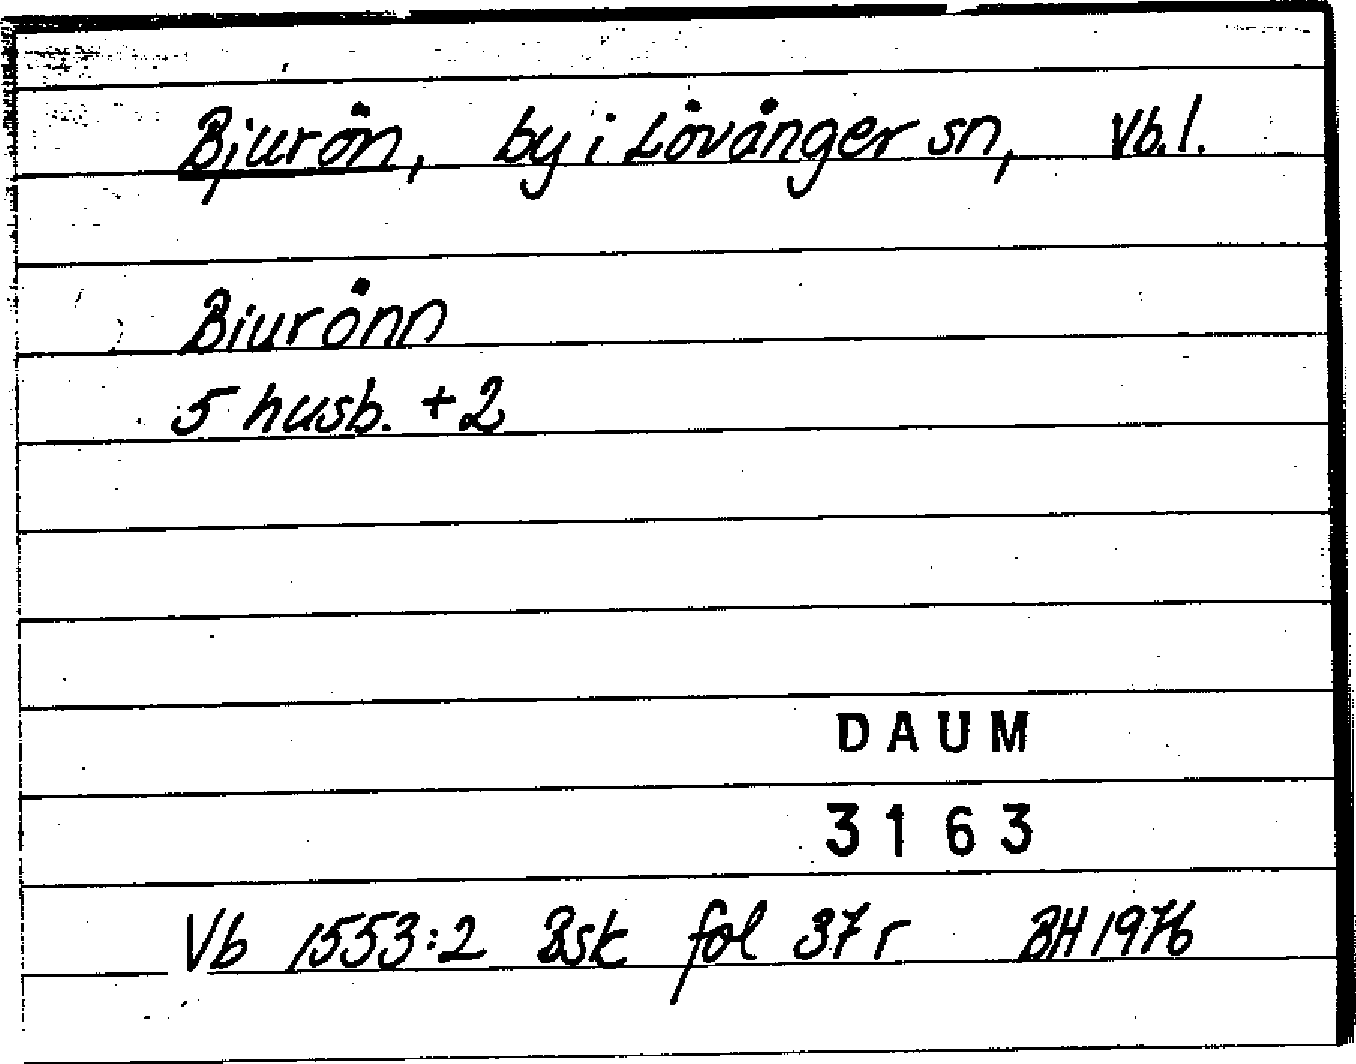 Bjurön, by i Lövånger sn, Vb.l.
Biurönn
5 husb. + 2
DAUM
3163
Vb 1553:2 Bsk fol 37 r BH 1976